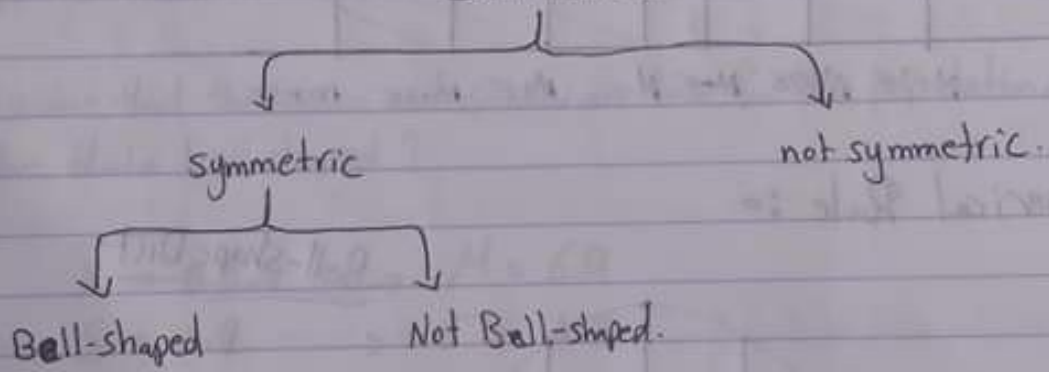 symmetric
not symmetric.
Bell-shaped
Not Bell-shaped.